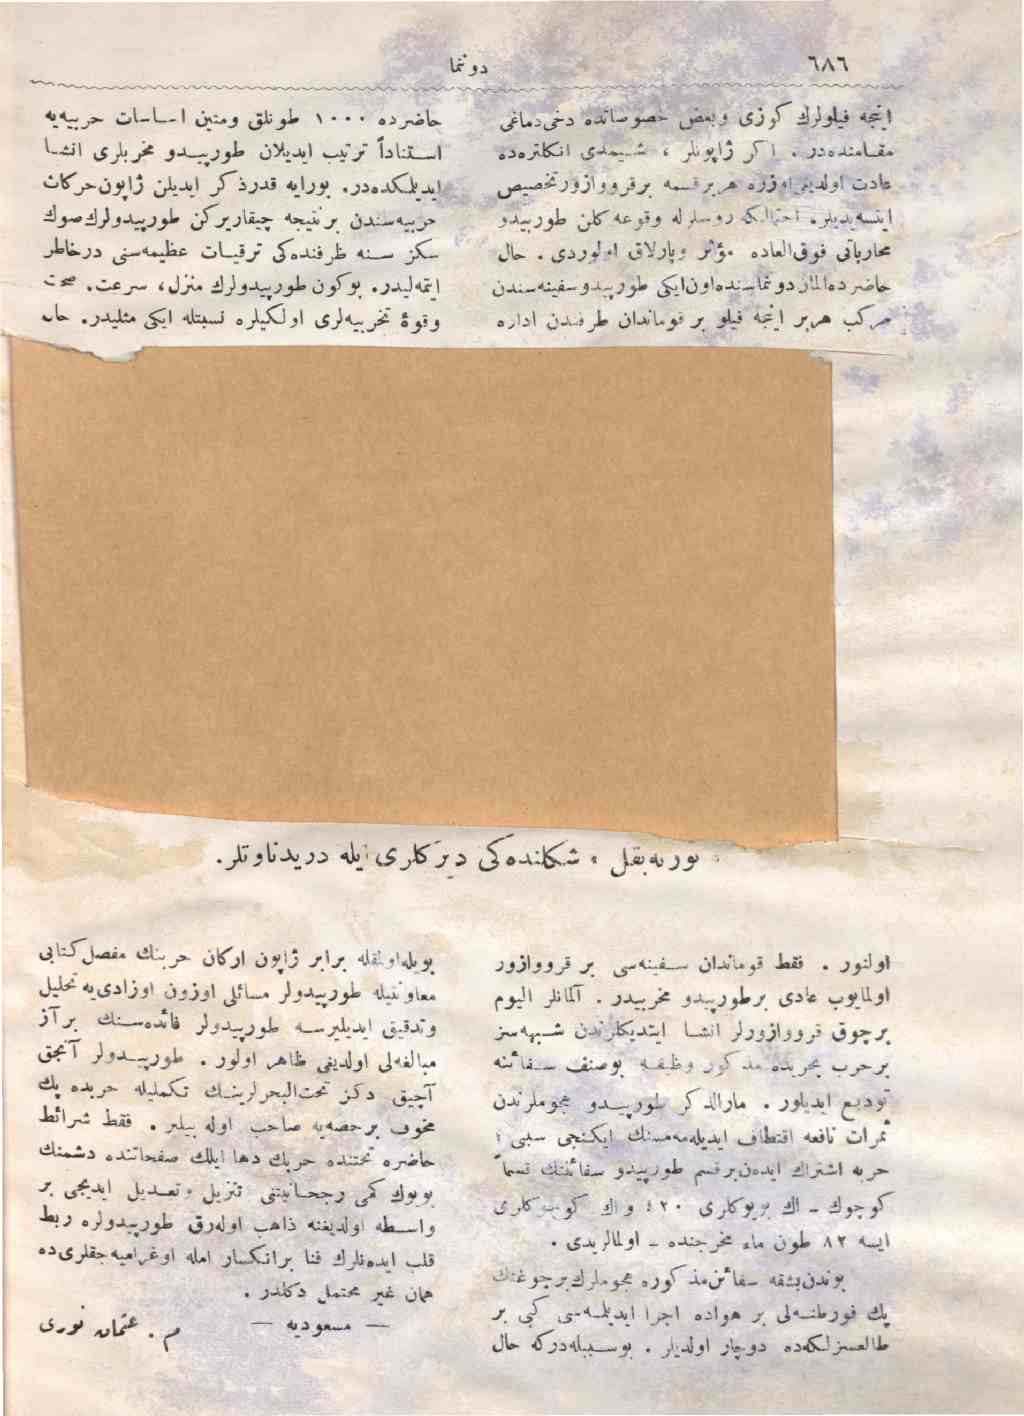 ٦٨٦
دوننما
اینجه فیلولرك كوزی وبعض خصوصاتده دخی دماغی
مقامنده در . اكر ژاپونلر ، شیمدی انكلتره ده
عادت اولدیغی اوزره هر بر قسمه بر قرووازور تخصیص
ایتسه یدیلر احتمالكه روسلرله وقوعه كلن طورپیدو
محارباتی فوق العاده مؤثر وپارلاق اولوردی . حال
حاضرده آلمان دوننماسنده اون ایكی طورپیدو سفینه سندن
مركب هر بر اینجه فیلو بر قوماندان طرفندن اداره
حاضرده ١٠٠٠ طونلق ومتین اساسات حربیه یه
استناداً ترتیب ایدیلان طورپیدو مخربلری انشا
ایدیلمكده در. بورایه قدر ذكر ایدیلن ژاپون حركات
حربیه سندن بر نتیجه چیقاریركن طورپیدولرك صوك
سكز سنه ظرفنده كی ترقیات عظیمه سنی درخاطر
ایتمه لیدر. بوكون طورپیدولرك منزل، سرعت، صحت
وقوهٔ تخریبیه لری اولكیلره نسبتله ایكی مثلیدر. حال
« نورنه بقل » شكلنده كی دیركلری ایله دریدناوتلر.
اولنور . فقط قوماندان سفینه سی بر قرووازور
اولمایوب عادی بر طورپیدو مخربیدر . آلمانلر الیوم
بر چوق قرووازورلر انشا ایتدیكلرندن شبهه سز
بر حرب بحریده مذكور وظیفه بو صنف سفائنه
تودیع ایدیلور . مارالذكر طورپیدو هجوملرندن
ثمرات نافعه اقتطاف ایدیله مه مسنك ایكنجی سببی ؛
حربه اشتراك ایدن بر قسم طورپیدو سفائننك قسماً
كوچوك ـ اك بویوكلری ١٢٠ واك كوچوكلری
ایسه ٨٢ طون ماء مخرجنده ـ اولمالریدی .
بوندن بشقه سفائن مذكوره هجوملرك بر چوغنك
پك فورطنه لی بر هواده اجرا ایدیلمه سی كبی بر
طالعسزلكه ده دوچار اولدیلر . بو سببله دركه حال
بویله اولمقله برابر ژاپون اركان حربنك مفصل كتابی
معاونتیله طورپیدولر مسائلی اوزون اوزادی یه تحلیل
وتدقیق ایدیلیرسه طورپیدولر فائده سنك بر آز
مبالغه لی اولدیغی ظاهر اولور . طورپیدولر آنجق
آچیق دكز تحت البحرلرینك تكملیله حربده پك
مخوف بر حصه یه صاحب اوله بیلیر . فقط شرائط
حاضره تحتنده حربك دها ایلك صفحاتنده دشمنك
بویوك كمی رجحانیتنی تنزیل وتعدیل ایدیجی بر
واسطه اولدیغنه ذاهب اوله رق طورپیدولره ربط
قلب ایدنلرك فنا بر انكسار امله اوغرامیه جقلری ده
همان غیر محتمل دكلدر .
— مسعودیه —
م . عثمان نوری